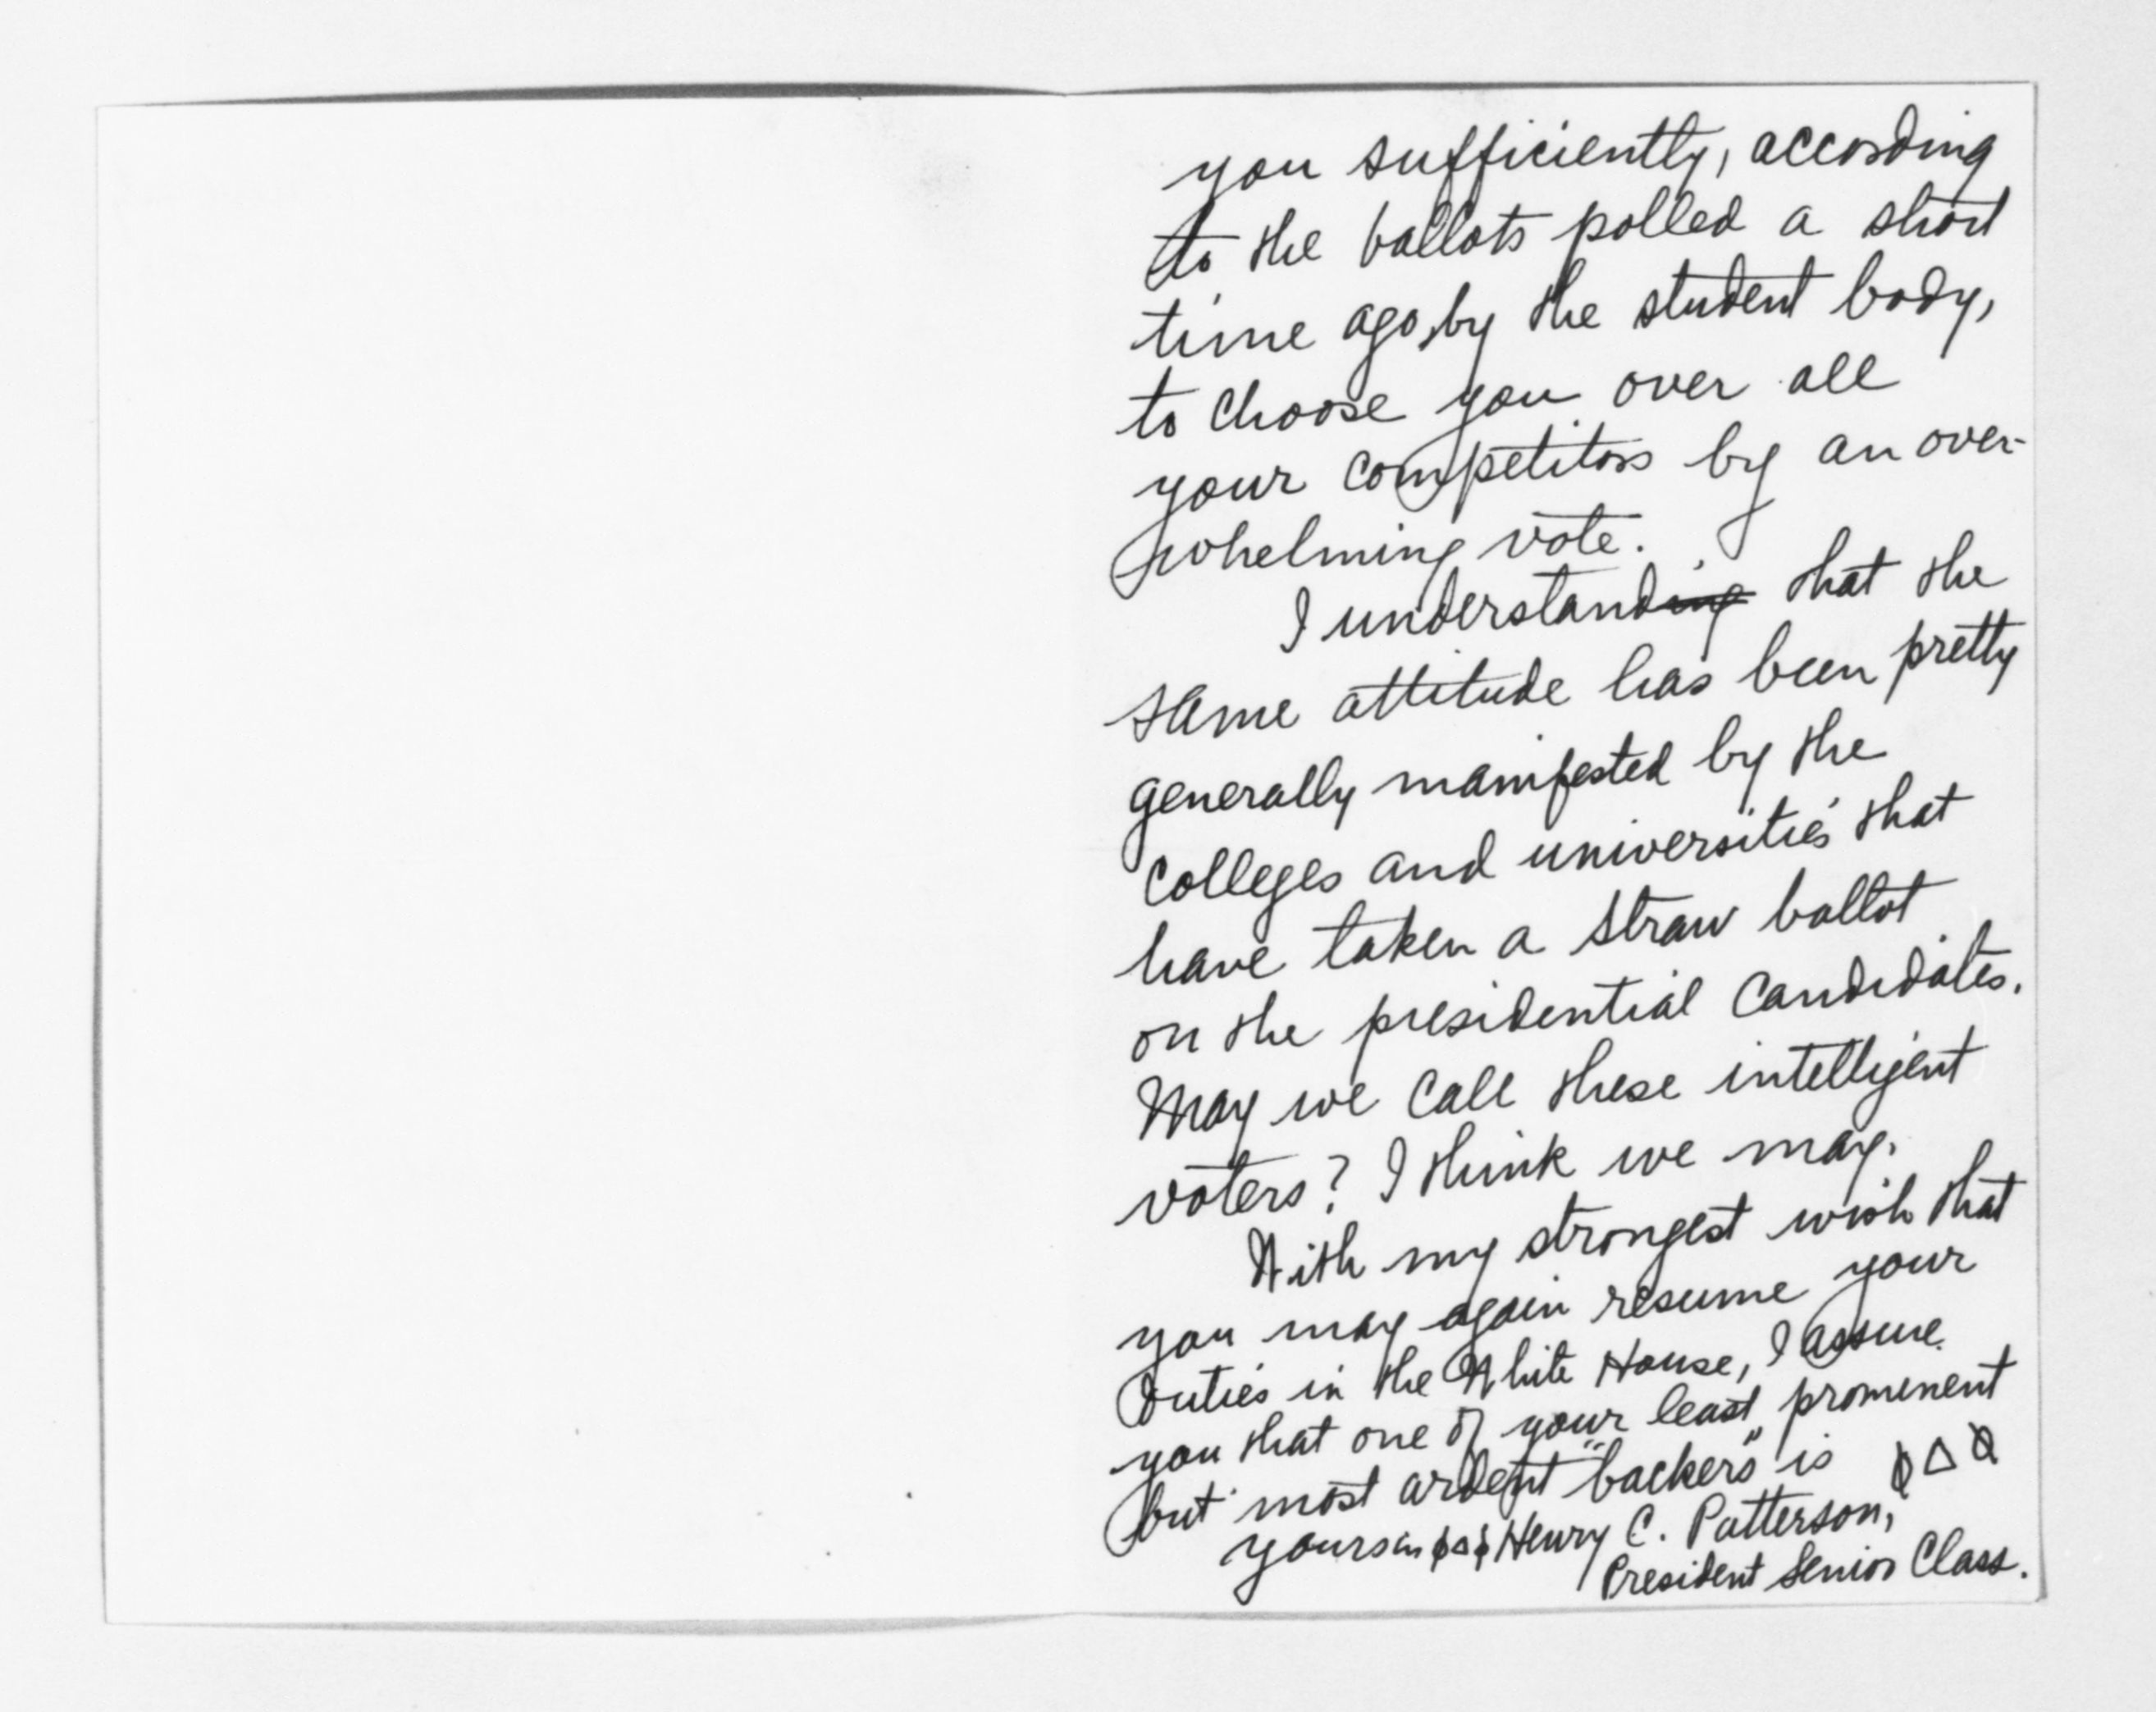 you sufficiently, according
to the ballots polled a short
time ago, by the student body,
to choose you over all
your competitors by an over-
whelming vote.
I understanding that the
same attitude has been pretty
generally manifested by the
colleges and universities that
have taken a straw ballot
on the presidential candidates.
May we call these intelligent
voters? I think we may.
With my strongest wish that
you may again resume your
duties in the White House, I assure
you that one of your least prominent
but most ardent "backers" is
yours in ΦΔΦ Henry C. Patterson,
President Senior Class.